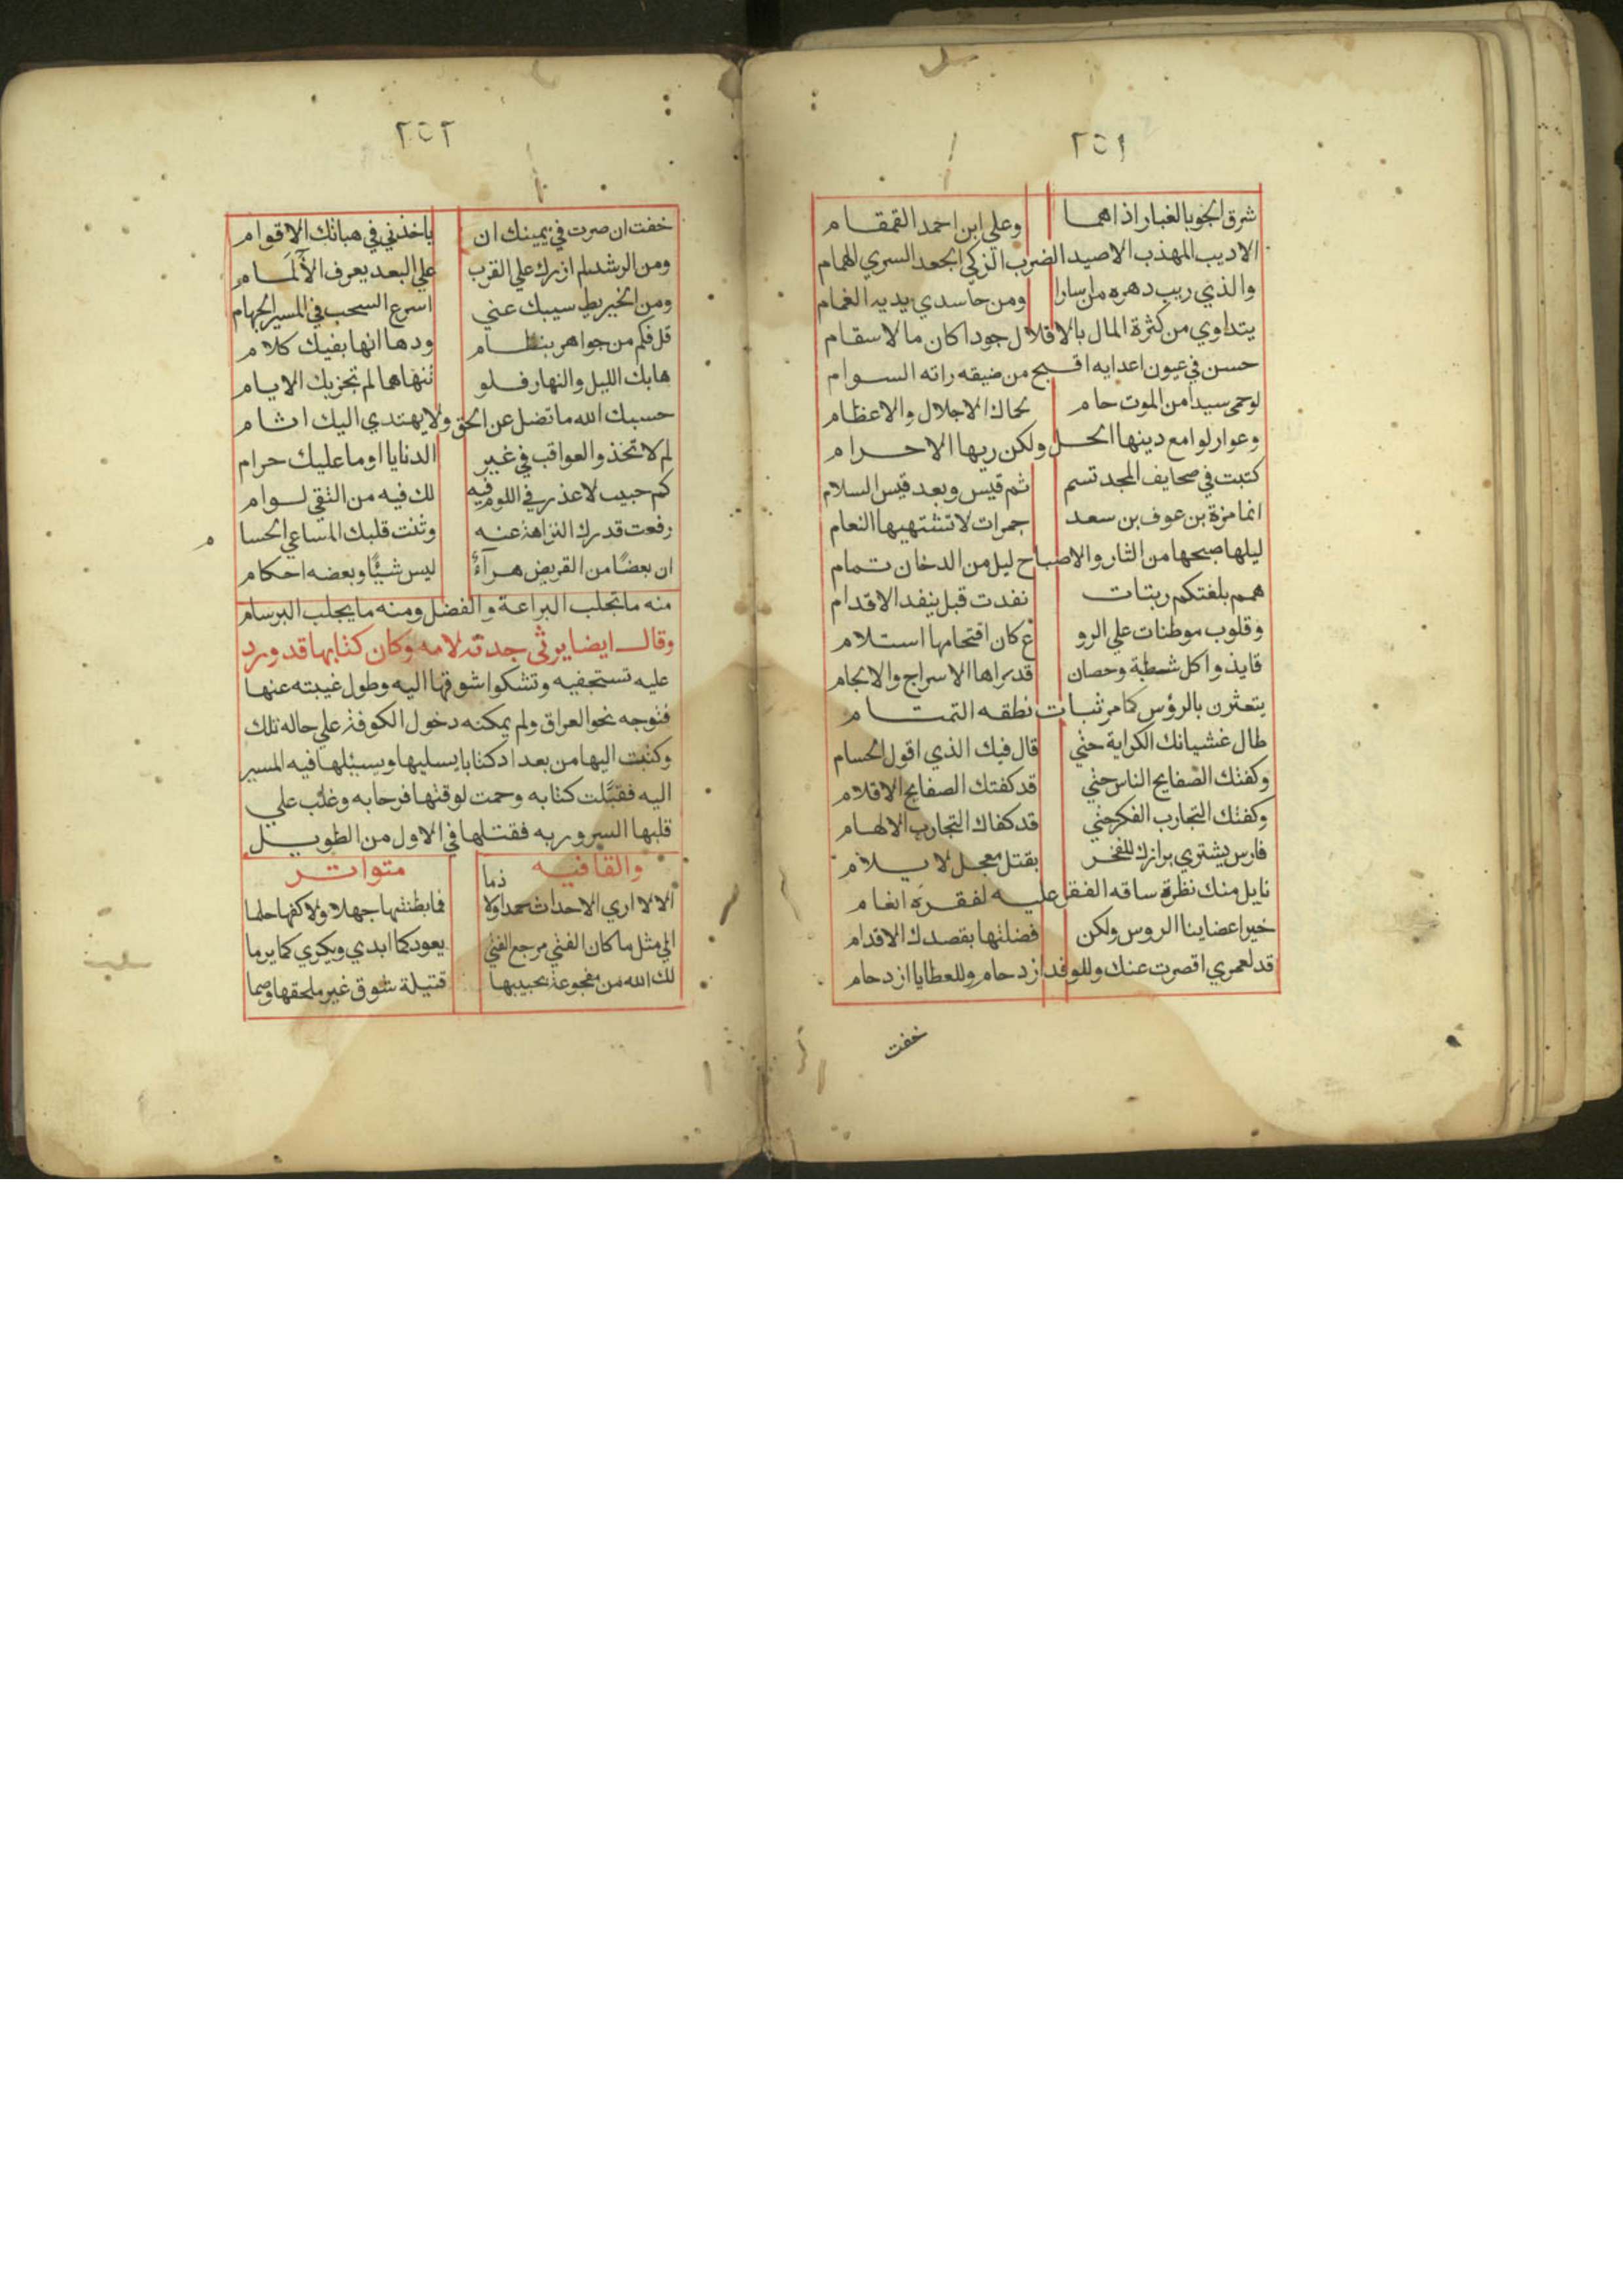 ٢٥١
شرق الجو بالغبار اذا هما وعلي ابن احمد القمقام
الاديب المهذب الاصيد الضرب الزكي الجعد السري الهمام
والذي ريب دهره من اسارا ومن حاسدي يديه الغمام
يتداوي من كثرة المال بالاقلال جودا كان مالا سقام
حسن في عيون اعدايه اقبح من ضيفه راته السوام
لو حمي سيدا من الموت حام لحماك الاجلال والاعظام
وعوار لوامع دينها الحل ولكن ريها الاحرام
كتبت في صحايف المجد تسم ثم قيس وبعد قيس السلام
انما مرة بن عوف بن سعد جمرات لا تشتهيها النعام
ليلها صبحها من النار والاصباح ليل من الدخان تمام
همم بلغتكم رتبات نفدت قبل ينفد الاقدام
وقلوب موطنات علي الرو ع كان اقتحامها استلام
قايد واكل شطبة وحصان قد براها الاسراج والالجام
يتعثرن بالرؤس كما مر ثبات نطقه التمتام
طال غشيانك الكراية حتي قال فيك الذي اقول الحسام
وكفتك الصفايح الناس حتي قد كفتك الصفايح الاقلام
وكفتك التجارب الفكر حتي قد كفاك التجارب الالهام
فارس يشتري برازك للفخر بقتل معجل لا يلام
نايل منك نظرة ساقه الفقر عليه لفقره انعام
خير اعضاينا الروس ولكن فضلتها بقصدك الاقدام
قد لعمري اقصرت عنك وللوفد ازدحام وللعطايا ازدحام
خفت
٢٥٢
خفت ان صرت في يمينك ان ياخذني في هباتك الاقوام
ومن الرشد لم ازرك علي القرب علي البعد يعرف الألمام
ومن الخير بط سيبك عني اسرع السحب في المسير الجهام
قل فكم من جواهر بنظام ودها انها بفيك كلام
هابك الليل والنهار فلو تنهاهما لم تجز بك الايام
حسبك الله ما تضل عن الحق ولا يهتدي اليك اثام
لم لا تحذ والعواقب في غير الدنايا او ما عليك حرام
كم حبيب لا عذر في اللوم فيه لك فيه من التقي لوام
رفعت قدرك النزاهة عنه وثنت قلبك المساعي الحسا م
ان بعضًا من القريض هرآءٌ ليس شيئًا وبعضه احكام
منه ما تجلب البراعة والفضل ومنه ما يجلب البرسام
وقال ايضا يرثي جدته لامه وكان كتابها قد ورد
عليه تستجفيه وتشكوا شوقها اليه وطول غيبته عنها
فتوجه نحو العراق ولم يمكنه دخول الكوفة علي حاله تلك
وكتبت اليها من بعداد كتابا يسليها ويسئلها فيه المسير
اليه فقبّلت كتابه وحمت لوقتها فرحا به وغلب علي
قلبها السرور به فقتلها في الاول من الطويل
والقافيه متواتر
الا لا اري الاحداث حمدا ولا ذما فما بطشها جهلا ولا كفها حلما
الي مثل ما كان الفتي مرجع الفتي يعود كما ابدي ويكري كما يرما
لك الله من مفجوعة بحبيبها قتيلة شوق غير ملحقها وصما